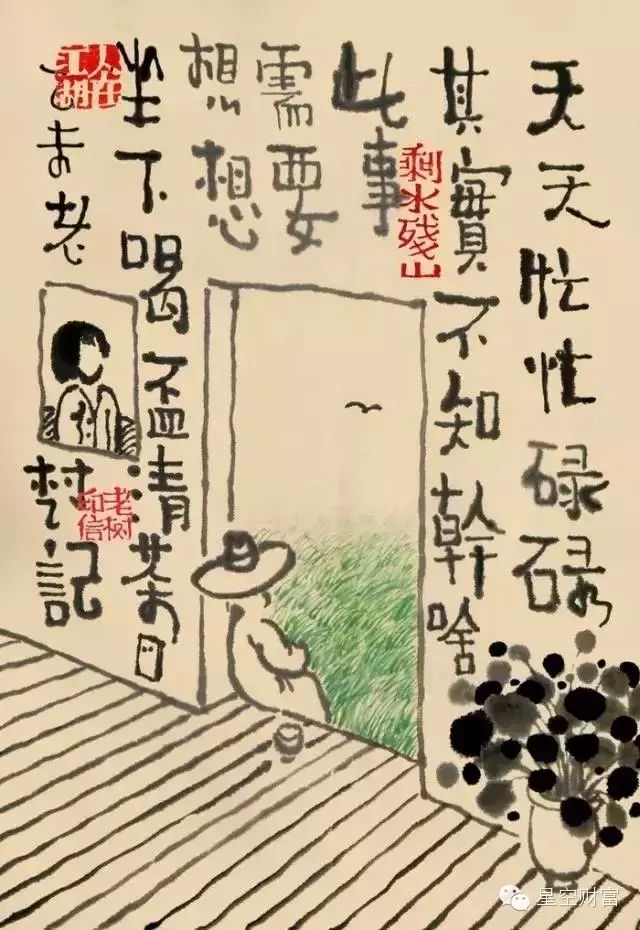 天天忙忙碌碌
其實不知幹啥
剩水殘山
此事
需要
想想
坐下喝盃清茶
人在江湖
乙未老
記
老树印信
星空财富